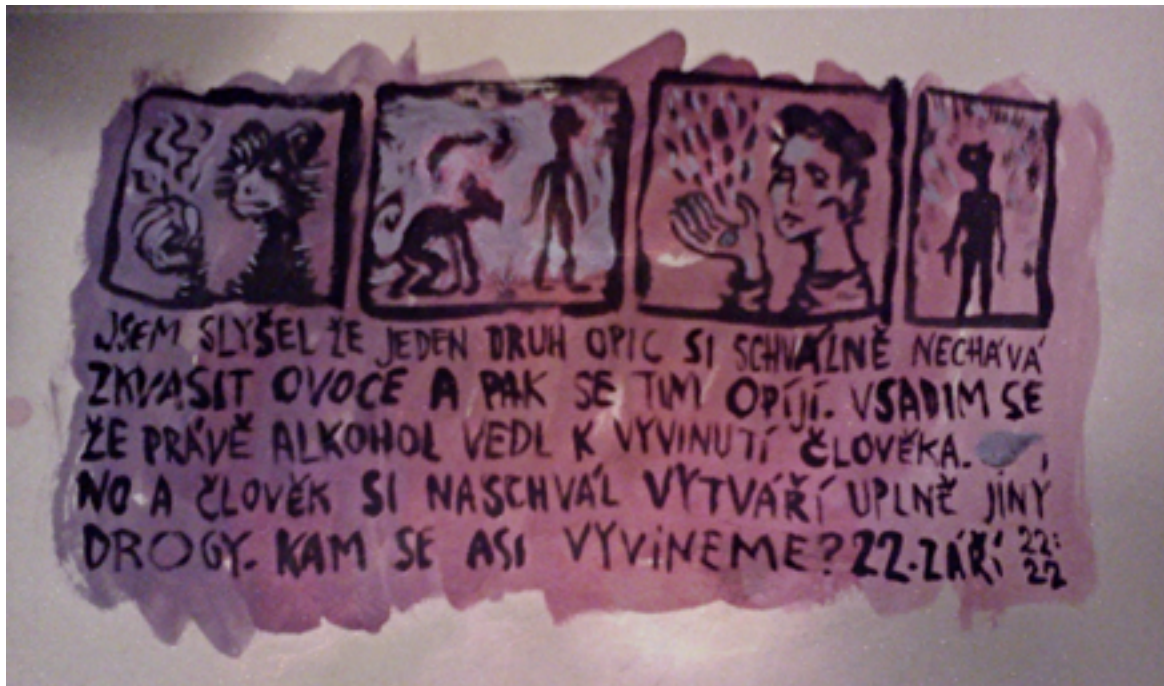 JSEM SLYŠEL ŽE JEDEN DRUH OPIC SI SCHVÁLNĚ NECHÁVÁ
ZKVASIT OVOCE A PAK SE TIM OPÍJÍ. VSADIM SE
ŽE PRÁVĚ ALKOHOL VEDL K VYVINUTÍ ČLOVĚKA.
NO A ČLOVĚK SI NASCHVÁL VYTVÁŘÍ UPLNĚ JÍNY
DROGY. KAM SE ASI VYVINEME? 22. ZÁŘÍ 22:22